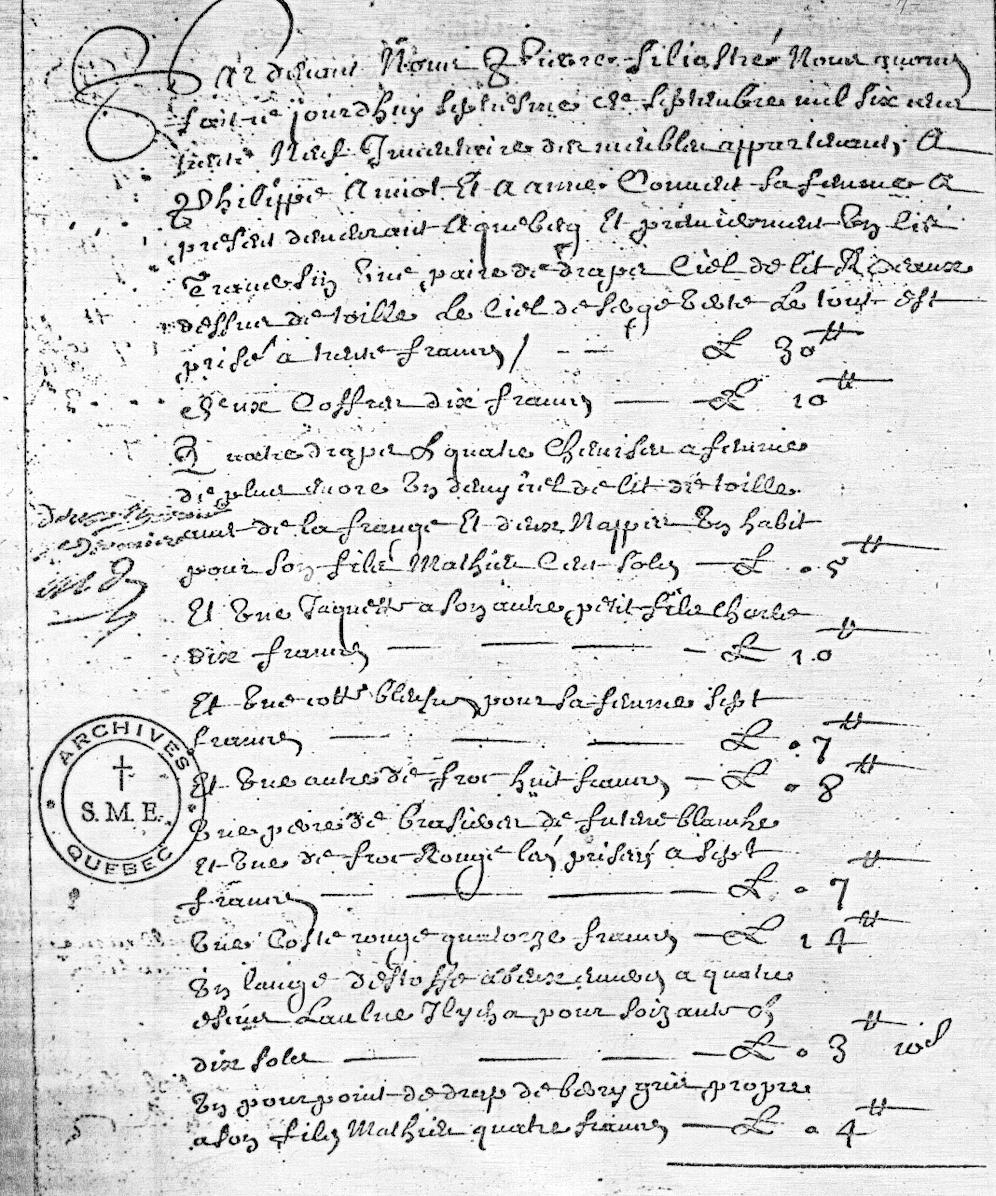 Par devant Nous Pierre filiastre Nous avons
fait ce jourdhuy septiesme de Septembre mil six cens
trente Neuf Inventaire des meubles appartenans A
Philippe Amiot Et A anne Convent sa femme A
present demeurant A quebeq Et premierement Un lict
Une paire de draps Ciel de lit Rideaux
dessus de toille Le Ciel de serge verte Le tout est
prisé a trente francs / - - L 30tt
deux Coffres dix francs — — L 10tt
Quatre draps & quatre Chemises a femme
de plus encore Un demy ciel de lit de toille
avec de la frange Et deux Nappes Un habit
pour son filz Mathieu Cent solz — L . 5tt
Et Une Jaquette a son autre petit filz Charle
dix francs — — — - L 10tt
Et Une cotte bleuse pour sa femme sept
francs — — — L . 7tt
Et Une autre de froc huit francs — L . 8tt
Une paire de brasieres de futene blanche
Et Une de froc Rouge prisés a sept
francs — — — — L . 7tt
Une Cotte rouge quatorze francs — L 14tt
Un lange destoffe a quatre
Laulne Il y en a pour soixante &
dix solz — — — — L . 3tt 10s
Un pourpoint de drap de bery gris propre
a son filz Mathieu quatre francs — L . 4tt
ARCHIVES
S. M. E.
QUEBEC